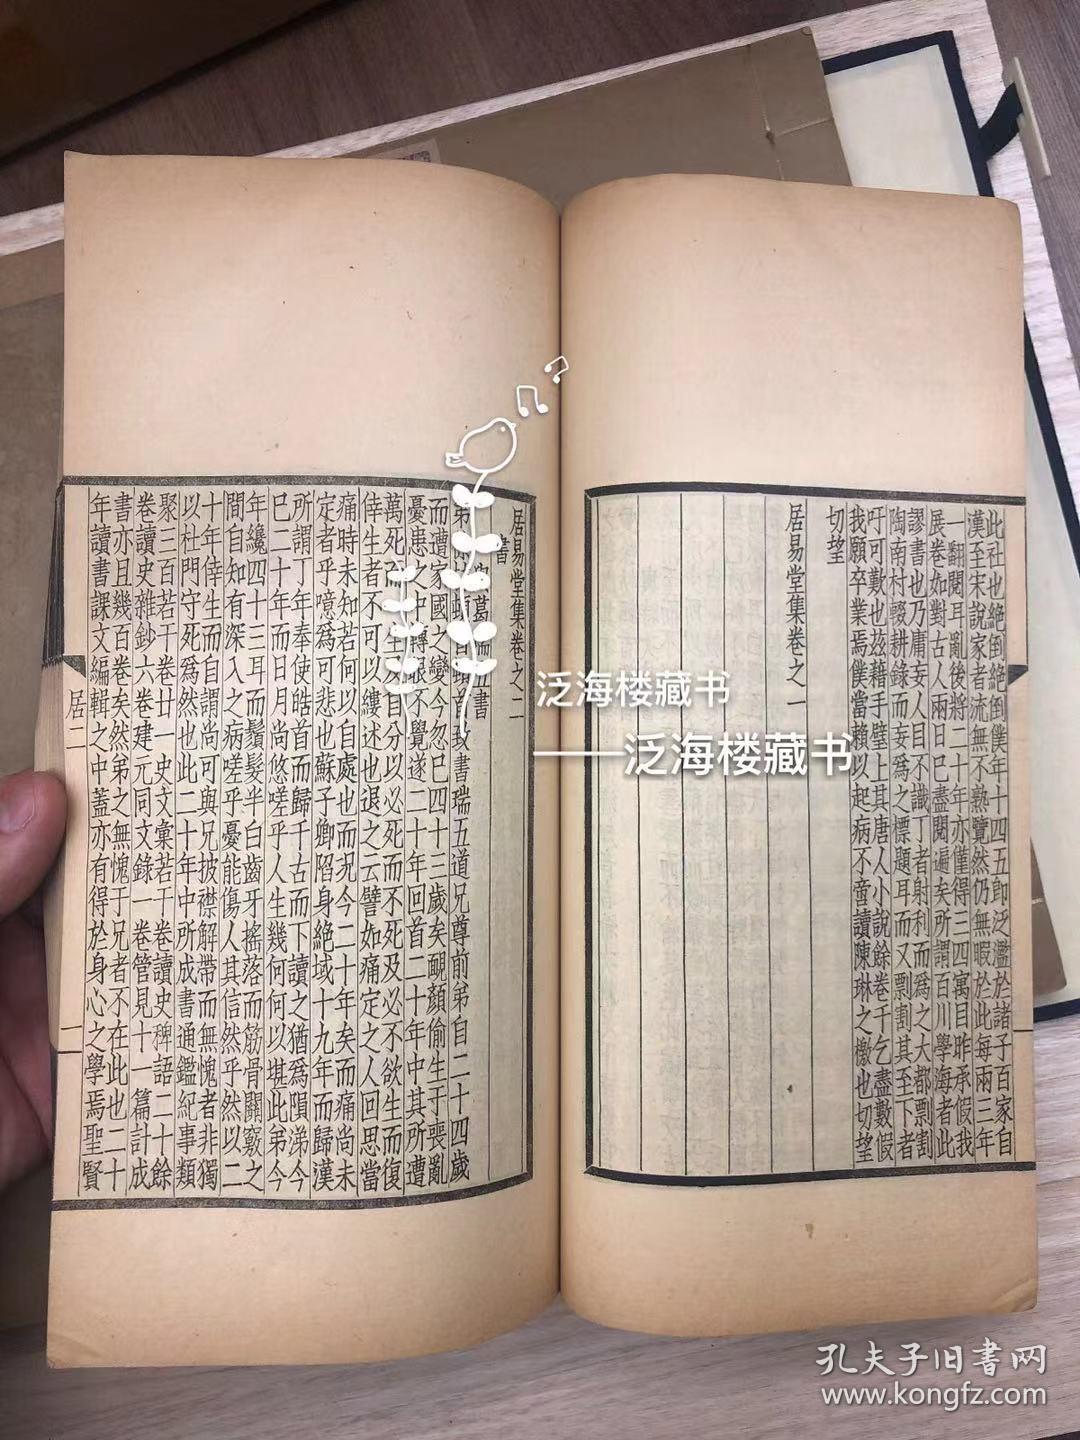 此社也絶倒絶倒僕年十四五即泛濫於諸子百家自
漢至宋說家者流無不熟覽然仍無暇於此每兩三年
一翻閱耳亂後將二十年亦僅得三四寓目昨承假我
展卷如對古人兩日已盡閱遍矣所謂百川學海者此
謬書也乃庸妄人目不識丁者射利而爲之大都剽割
陶南村輟耕錄而妄爲之慓題耳而又剽割其至下者
吁可歎也茲藉手璧上其唐人小說餘卷千乞盡數假
我願卒業焉僕當賴以起病不啻讀陳琳之檄也切望
切望
居易堂集卷之一
居易堂集卷之二
書
與葛瑞五書
弟 頓首 首致書瑞五道兄尊前弟自二十四歲
而遭家國之變今忽已四十三歲矣靦顏偷生于喪亂
憂患之中轉眼不覺遂二十年回首二十年中其所遭
萬死而 生及自分以必死而不死及必不欲生而復
倖生者不可以縷述也退之云譬如痛定之人回思當
痛時未知若何以自處也而況今二十年矣而痛尚未
定者乎噫爲可悲也蘇子卿陷身絶域十九年而歸漢
所謂丁年奉使皓首而歸千古而下讀之猶爲隕涕今
已二十年而日月尚悠悠嗟乎人生幾何何以堪此弟今
年纔四十三耳而鬚髮半白齒牙搖落而筋骨關竅之
間自知有深入之病嗟乎憂能傷人其信然乎然以二
十年倖生而自謂尚可與兄披襟解帶而無愧者非獨
以杜門守死爲然也此二十年中所成書通鑑紀事類
聚三百若干卷廿一史文彙若干卷讀史稗語二十餘
卷讀史雜鈔六卷建元同文錄一卷管見十一篇計成
書亦且幾百卷矣然弟之無愧于兄者不在此也二十
年讀書課文編輯之中蓋亦有得於身心之學焉聖賢
居二
一
泛海楼藏书
——泛海楼藏书
孔夫子旧书网
www.kongfz.com